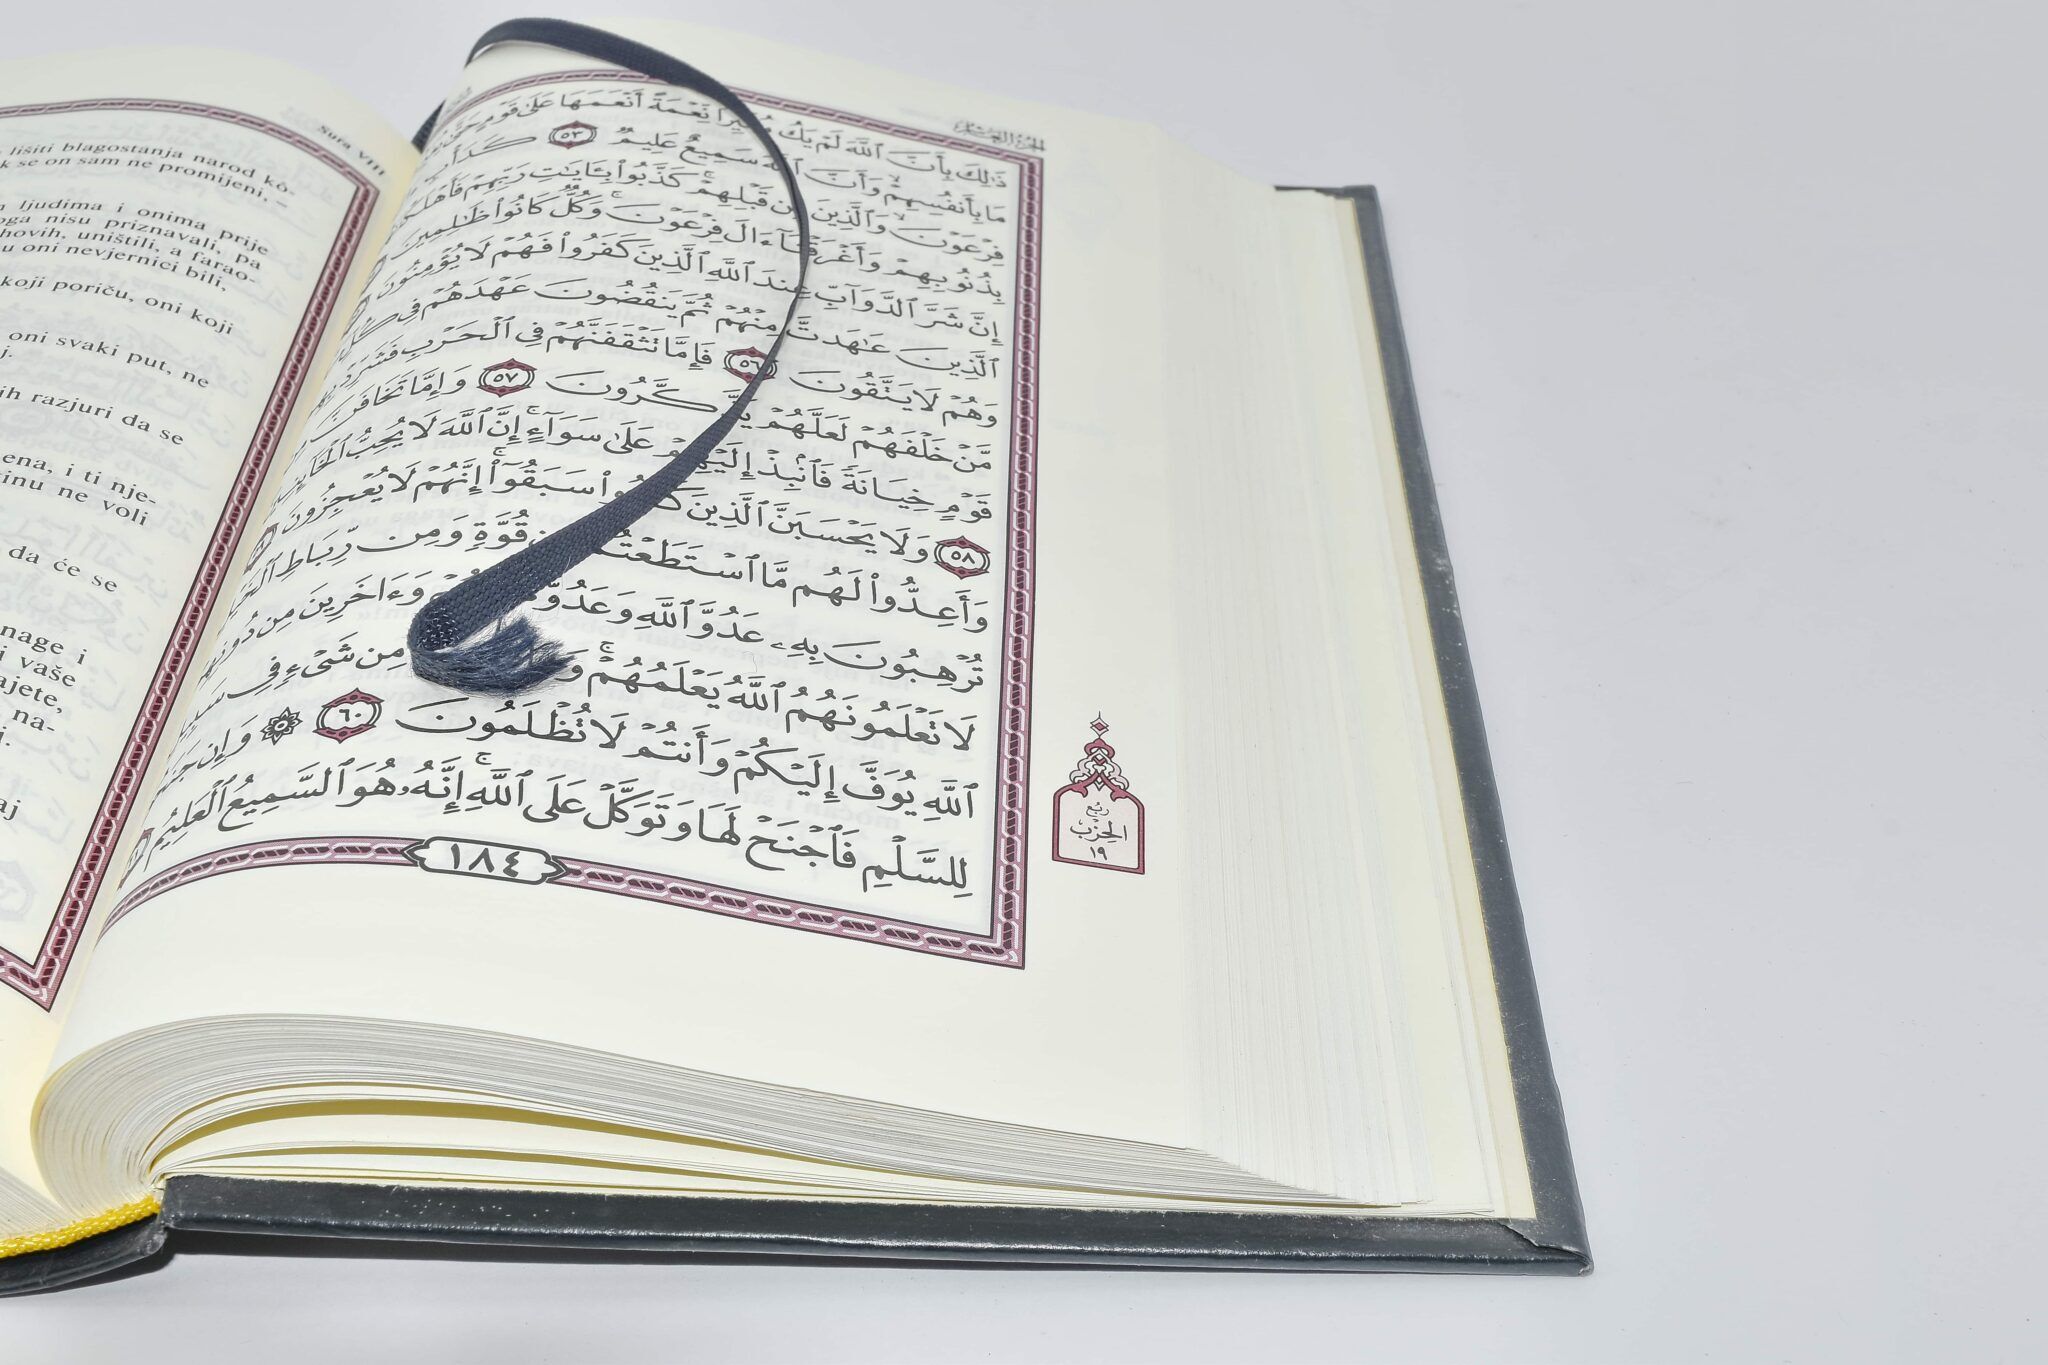 Sura VIII
lišiti blagostanja narod ko-
k se on sam ne promijeni. –
ljudima i onima prije
oga nisu priznavali, pa
hovih, uništili, a farao-
u oni nevjernici bili,
koji poriču, oni koji
oni svaki put, ne
j.
ih razjuri da se
ena, i ti nje-
tinu ne voli
da će se
nage i
i vaše
ajete,
na-
i.
aj
ذَٰلِكَ بِأَنَّ ٱللَّهَ لَمْ يَكُ نِّعْمَةً أَنْعَمَهَا عَلَىٰ قَوْمٍ حَتَّىٰ
مَا بِأَنفُسِهِمْ وَأَنَّ ٱللَّهَ سَمِيعٌ عَلِيمٌ ٥٣ كَدَأْبِ
فِرْعَوْنَ وَٱلَّذِينَ مِن قَبْلِهِمْ ۚ كَذَّبُوا۟ بِـَٔايَٰتِ رَبِّهِمْ
بِذُنُوبِهِمْ وَأَغْرَقْنَآ ءَالَ فِرْعَوْنَ ۚ وَكُلٌّ كَانُوا۟ ظَٰلِمِينَ
إِنَّ شَرَّ ٱلدَّوَآبِّ عِندَ ٱللَّهِ ٱلَّذِينَ كَفَرُوا۟ فَهُمْ لَا يُؤْمِنُونَ
ٱلَّذِينَ عَٰهَدتَّ مِنْهُمْ ثُمَّ يَنقُضُونَ عَهْدَهُمْ فِى كُلِّ
وَهُمْ لَا يَتَّقُونَ ٥٦ فَإِمَّا تَثْقَفَنَّهُمْ فِى ٱلْحَرْبِ
مَّنْ خَلْفَهُمْ لَعَلَّهُمْ يَذَّكَّرُونَ ٥٧ وَإِمَّا تَخَافَنَّ
قَوْمٍ خِيَانَةً فَٱنۢبِذْ إِلَيْهِمْ عَلَىٰ سَوَآءٍ ۚ إِنَّ ٱللَّهَ لَا يُحِبُّ
٥٨ وَلَا يَحْسَبَنَّ ٱلَّذِينَ سَبَقُوٓا۟ ۚ إِنَّهُمْ لَا يُعْجِزُونَ
وَأَعِدُّوا۟ لَهُم مَّا ٱسْتَطَعْتُم قُوَّةٍ وَمِن رِّبَاطِ
تُرْهِبُونَ بِهِۦ عَدُوَّ ٱللَّهِ وَعَدُوَّ وَءَاخَرِينَ مِن دُونِهِمْ
لَا تَعْلَمُونَهُمُ ٱللَّهُ يَعْلَمُهُمْ ۚ مِن شَىْءٍ فِى
ٱللَّهِ يُوَفَّ إِلَيْكُمْ وَأَنتُمْ لَا تُظْلَمُونَ ٦٠ ۞ وَإِن
لِلسَّلْمِ فَٱجْنَحْ لَهَا وَتَوَكَّلْ عَلَى ٱللَّهِ ۚ إِنَّهُۥ هُوَ ٱلسَّمِيعُ ٱلْعَلِيمُ
ربع
الحزب
١٩
١٨٤